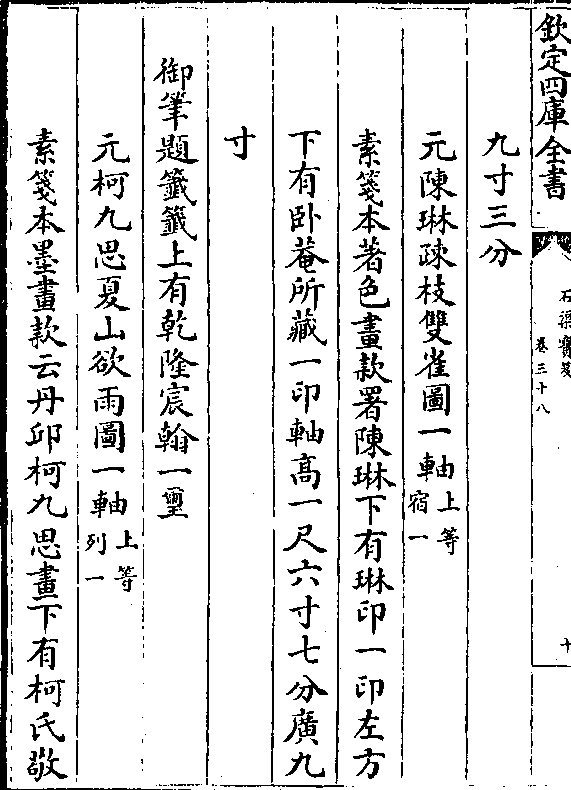 欽定四庫全書
石渠寶笈
卷三十八
十
九寸三分
元陳琳疎枝雙雀圖一軸上等
宿一
素箋本著色畫款署陳琳下有琳印一印左方
下有卧菴所藏一印軸高一尺六寸七分廣九
寸
御筆題籤籤上有乾隆宸翰一璽
元柯九思夏山欲雨圖一軸上等
列一
素箋本墨畫款云丹邱柯九思畫下有柯氏敬